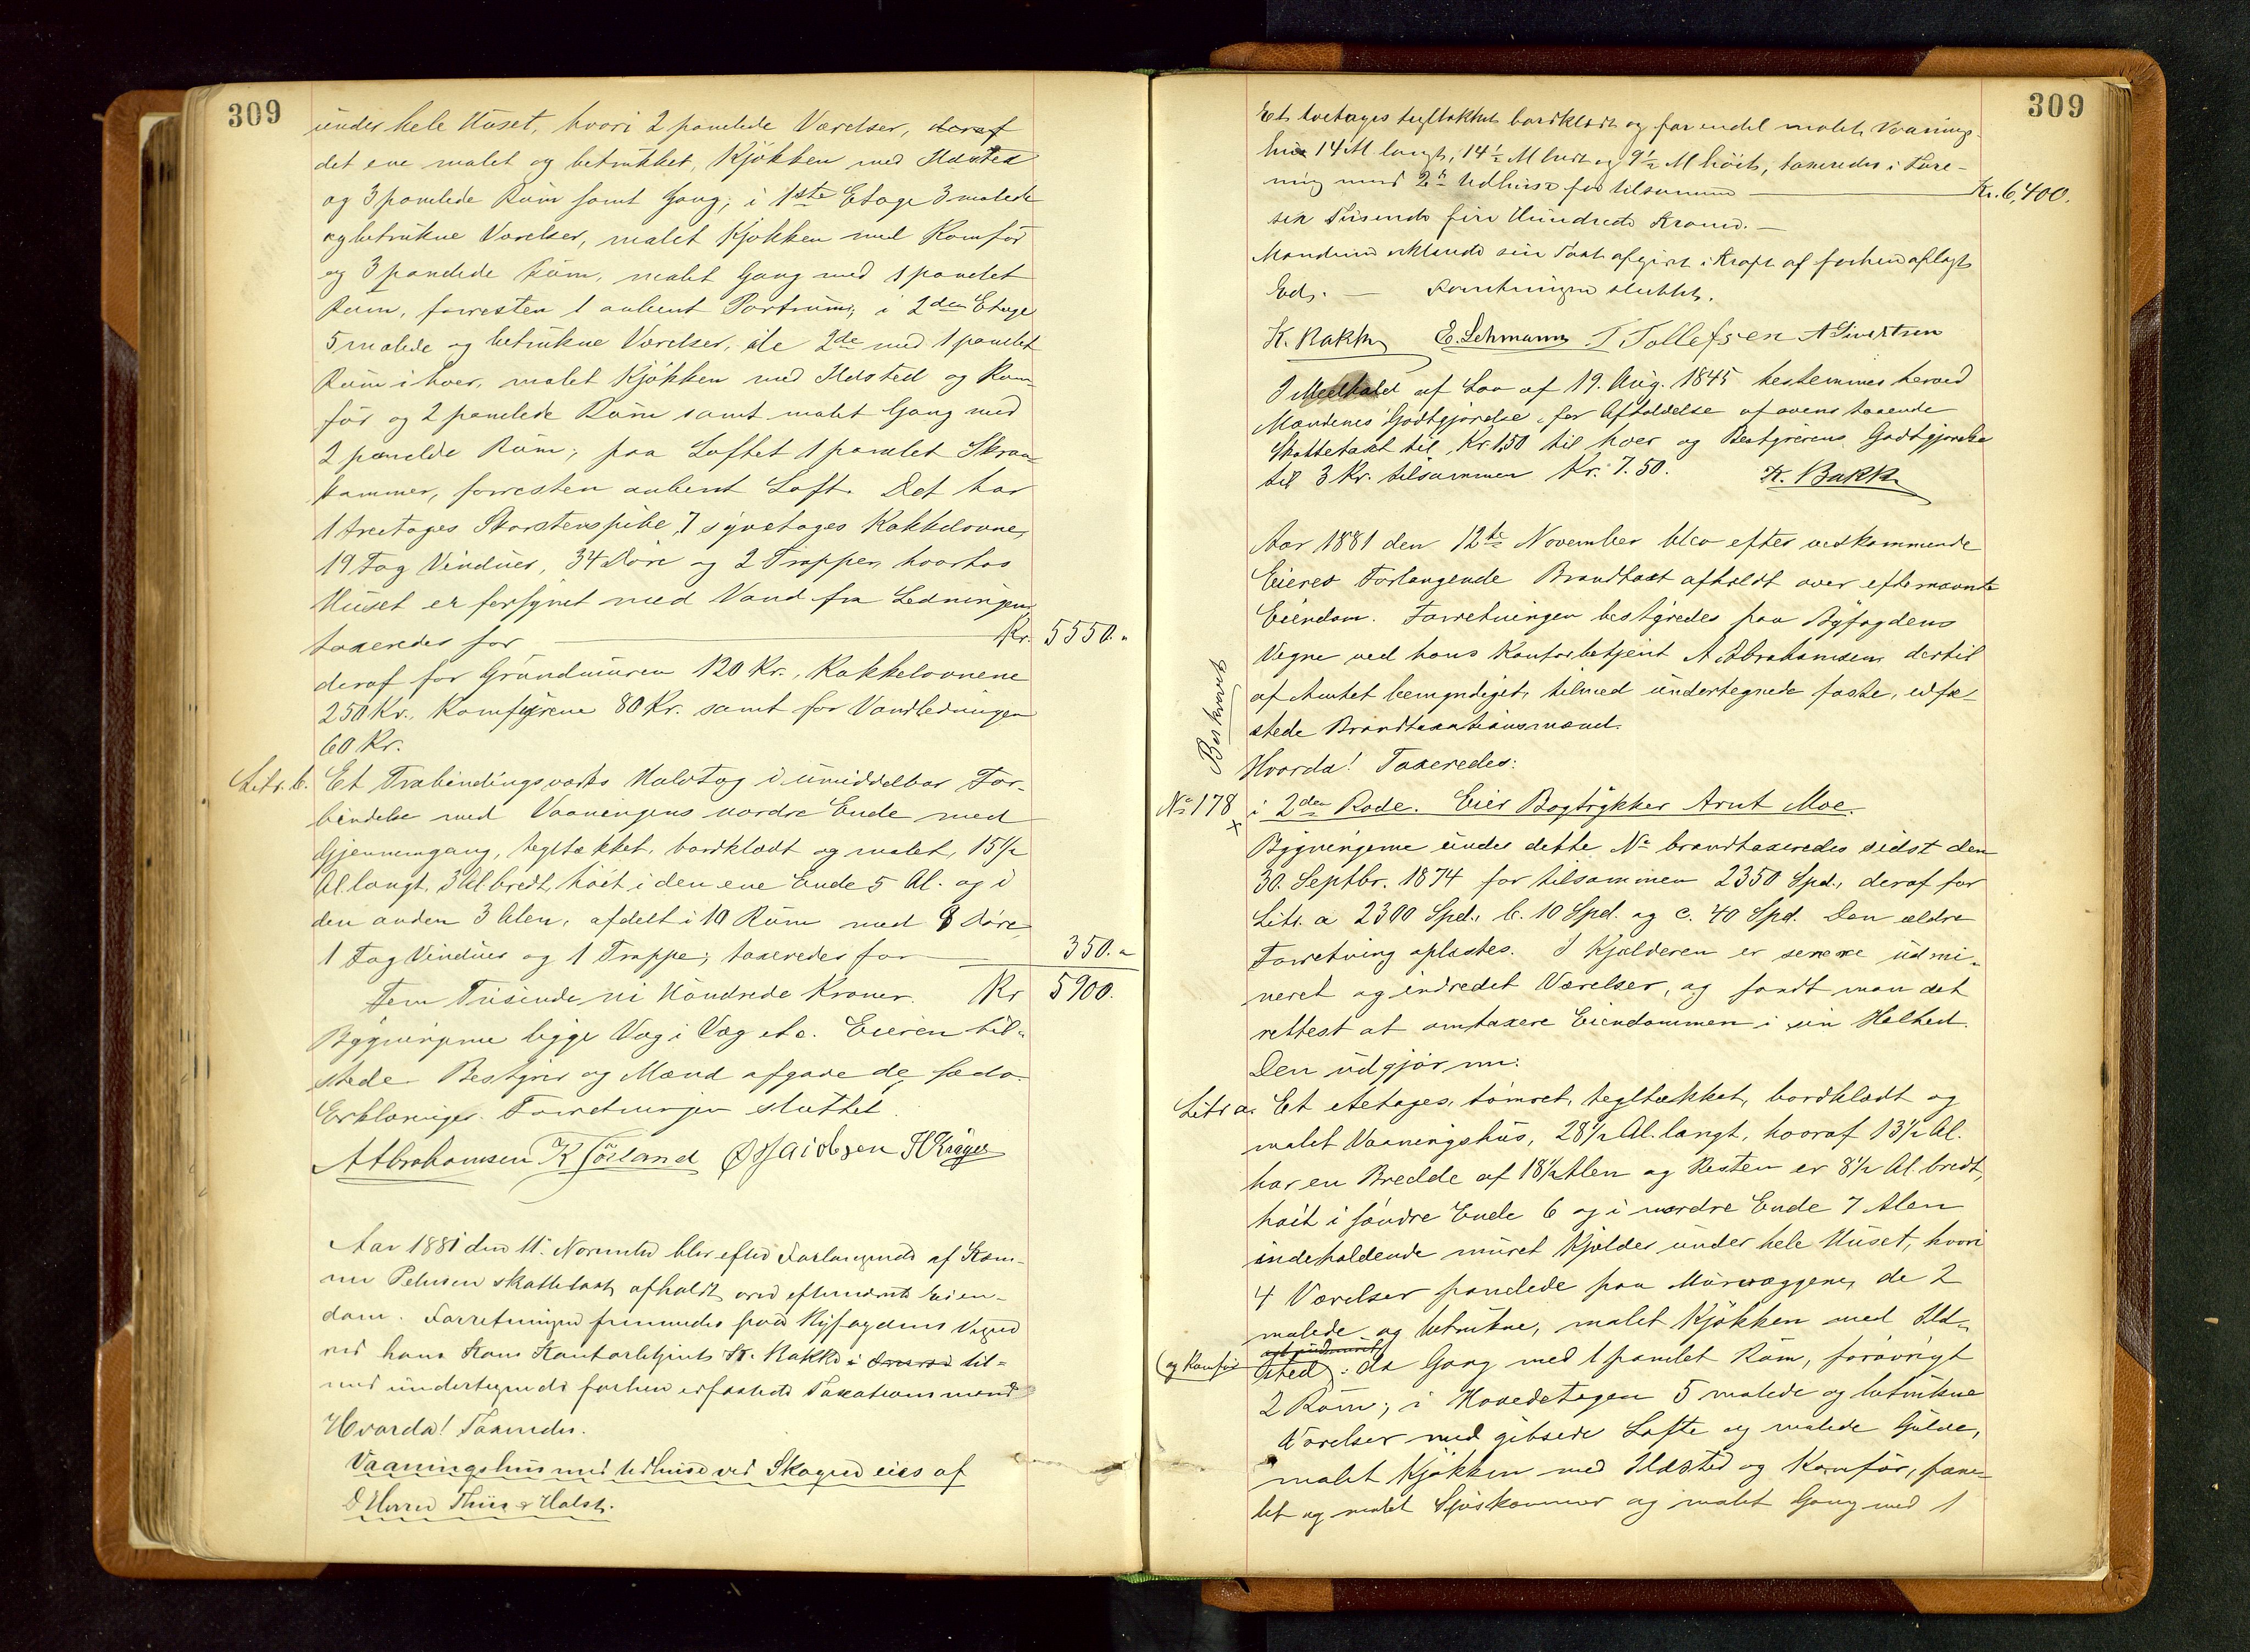 309
under hele Huset, hvori 2 panelede Værelser, deraf
det ene malet og betrukket, Kjøkken med Ildsted
og 3 panelede Rum samt Gang; i 1ste Etage 3 malede
og betrukne Værelser, malet Kjøkken med Komfür
og 3 panelede Rum, malet Gang med 1 panelet
Rum, forresten 1 aabent Portrum; i 2den Etage
5 malede og betrukne Værelser, de 2de med 1 panelet
Rum i hver, malet Kjøkken med Ildsted og Kom-
für og 2 panelede Rum samt malet Gang med
2 panelde Rum; paa Loftet 1 panelet Skraa-
kammer, forresten aabent Loft. Det har
1 treetages Skorstenspibe, 7 syvetages Kakkelovne,
19 Fag Vinduer, 34 Döre og 2 Trapper, hvorhos
Huset er forsynet med Vand fra Ledningen,
taxeredes for Kr. 5550.
deraf for Grundmuren 120 Kr., Kakkelovnene
250 Kr., Komfyrene 80 Kr. samt for Vandledningen
60 Kr.
Litr. b. Et Træbindingsværks Halvtag i umiddelbar For-
bindelse med Vaaningens nordre Ende med
Gjennemgang, tegltækket, bordklædt og malet, 15 1/2
Al. langt, 3 Al bredt, høit i den ene Ende 5 Al. og i
den anden 3 Alen, afdelt i 10 Rum med 8 Döre,
1 Fag Vinduer og 1 Trappe; taxeredes for 350.
Fem Tusinde ni Hundrede Kroner. Kr 5900.
Bygningerne ligge Væg i Væg etc. Eieren til-
stede. Bestyrer og Mænd afgave de sædv.
Erklæringer. Forretningen sluttet.
A Abrahamsen K Sörland Ø Jacobsen H Kröger
Aar 1881 den 11te November blev efter Forlangende af Kæm-
ner Petersen skattetaxt afholdt over efternævnte Eien-
dom. Forretningen fremmedes paa Byfogdens Vegne
ved hans Kontorbetjent K. Bakke til-
med undertegnede forhen edfæstede Taxationsmænd
Hvorda! Taxeredes.
Vaaningshus med Udhuse ved Skagen eies af
D'Herrer Thiis & Holst.
309
Et toetages tegltækket bordklædt og for endel malet Vaanings-
hus 14 Al langt, 14 1/2 Al bredt og 9 1/2 Al höit, taxeredes i Fore-
ning med 2de Udhuse for tilsammen Kr. 6,400.
sex Tusende fire Hundrede Kroner.
Mændene erklærede sin Taxt afgivet i Kraft af forhen aflagt
Ed. Forretningen sluttet.
K. Bakke E. Lehmann T Tollefsen A Sivertsen
I Medhold af Lov af 19. Aug. 1845 bestemmes herved
Mændenes Godtgjørelse for Afholdelse af ovenstaaende
Skattetaxt til Kr. 1,50 til hver og Bestyrerens Godtgjørelse
til 3 Kr. tilsammen Kr. 7.50. K. Bakke
Aar 1881 den 12te November blev efter vedkommende
Eieres Forlangende Brandtaxt afholdt over efternævnte
Eiendom. Forretningen bestyredes paa Byfogdens
Vegne ved hans Kontorbetjent A Abrahamsen, dertil
af Amtet bemyndiget, tilmed undertegnede faste, edfæ-
stede Brandtaxationsmænd.
Beskrevet
Hvorda! Taxeredes:
No 178 i 2den Rode. Eier Bogtrykker Arnt Moe.
Bygningerne under dette No brandtaxeredes sidst den
30. Septbr. 1874 for tilsammen 2350 Spd., deraf for
Litr. a 2300 Spd., b. 10 Spd. og c. 40 Spd. Den ældre
Forretning oplæstes. I Kjælderen er senere udmi-
neret og indredet Værelser, og fandt man det
rettest at omtaxere Eiendommen i sin Helhed.
Den udgjør nu:
Litr a. Et etetages, tömret, tegltækket, bordklædt og
malet Vaaningshus, 28 1/2 Al. langt, hvoraf 13 1/2 Al.
har en Bredde af 18 1/2 Alen og Resten er 8 1/2 Al. bredt,
høit i søndre Ende 6 og i nordre Ende 7 Alen
indeholdende muret Kjælder under hele Huset, hvori
4 Værelser panelede paa Murvæggene, de 2
malede og betrukne, malet Kjøkken med Ild-
(og Komfür sted, Gang med 1 panelet Rum, forøvrigt
2 Rum; i Hovedetagen 5 malede og betrukne
Værelser med gibsede Lofte og malede Gulve,
malet Kjøkken med Ildsted og Komfür, pane-
let og malet Spiskammer og malet Gang med 1